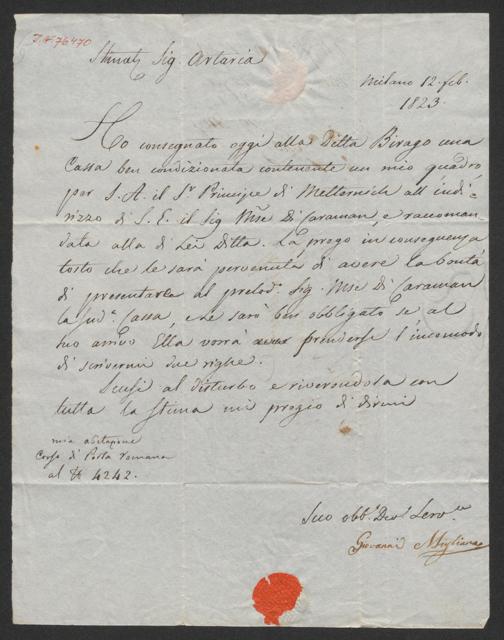 I.N. 76470
Stimatͫ Sig. Artaria
Milano 12. feb.
1823.
Ho consegnato oggi alla Ditta Birago una
Cassa ben condizionata contenente un mio quadro
per S. A. il Sr. Principe di Metternich all' indi-
rizzo di S. E. il Sig. Mse. Di Caraman, e raccoman
data alla di Lei Ditta. La prego in conseguenza
tosto che le sarà pervenuta di avere la bontà
di presentarla al prelod.o Sig. Mse. Di Caraman
la sud.a Cassa, e ne sarò ben obbligato se al
suo arrivo Ella vorrà prendersi l'incomodo
di scrivermi due righe.
Scusi al disturbo e riverendola con
tutta la stima mi pregio di dirmi
mia abitazione
Corso di Porta romana
al N 4242.
Suo obb.o Dev.o Serv.re
Giovanni Migliara